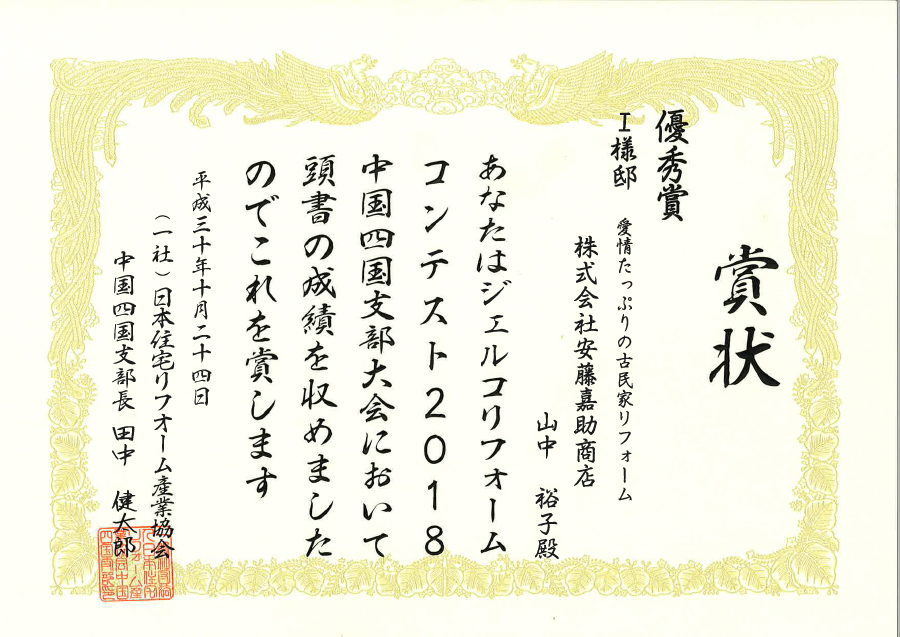 賞状
優秀賞
I様邸 愛情たっぷりの古民家リフォーム
株式会社安藤嘉助商店
山中 裕子殿
あなたはジェルコリフォーム
コンテスト2018
中国四国支部大会において
頭書の成績を収めました
のでこれを賞します
平成三十年十月二十四日
(一社)日本住宅リフォーム産業協会
中国四国支部長 田中 健太郎